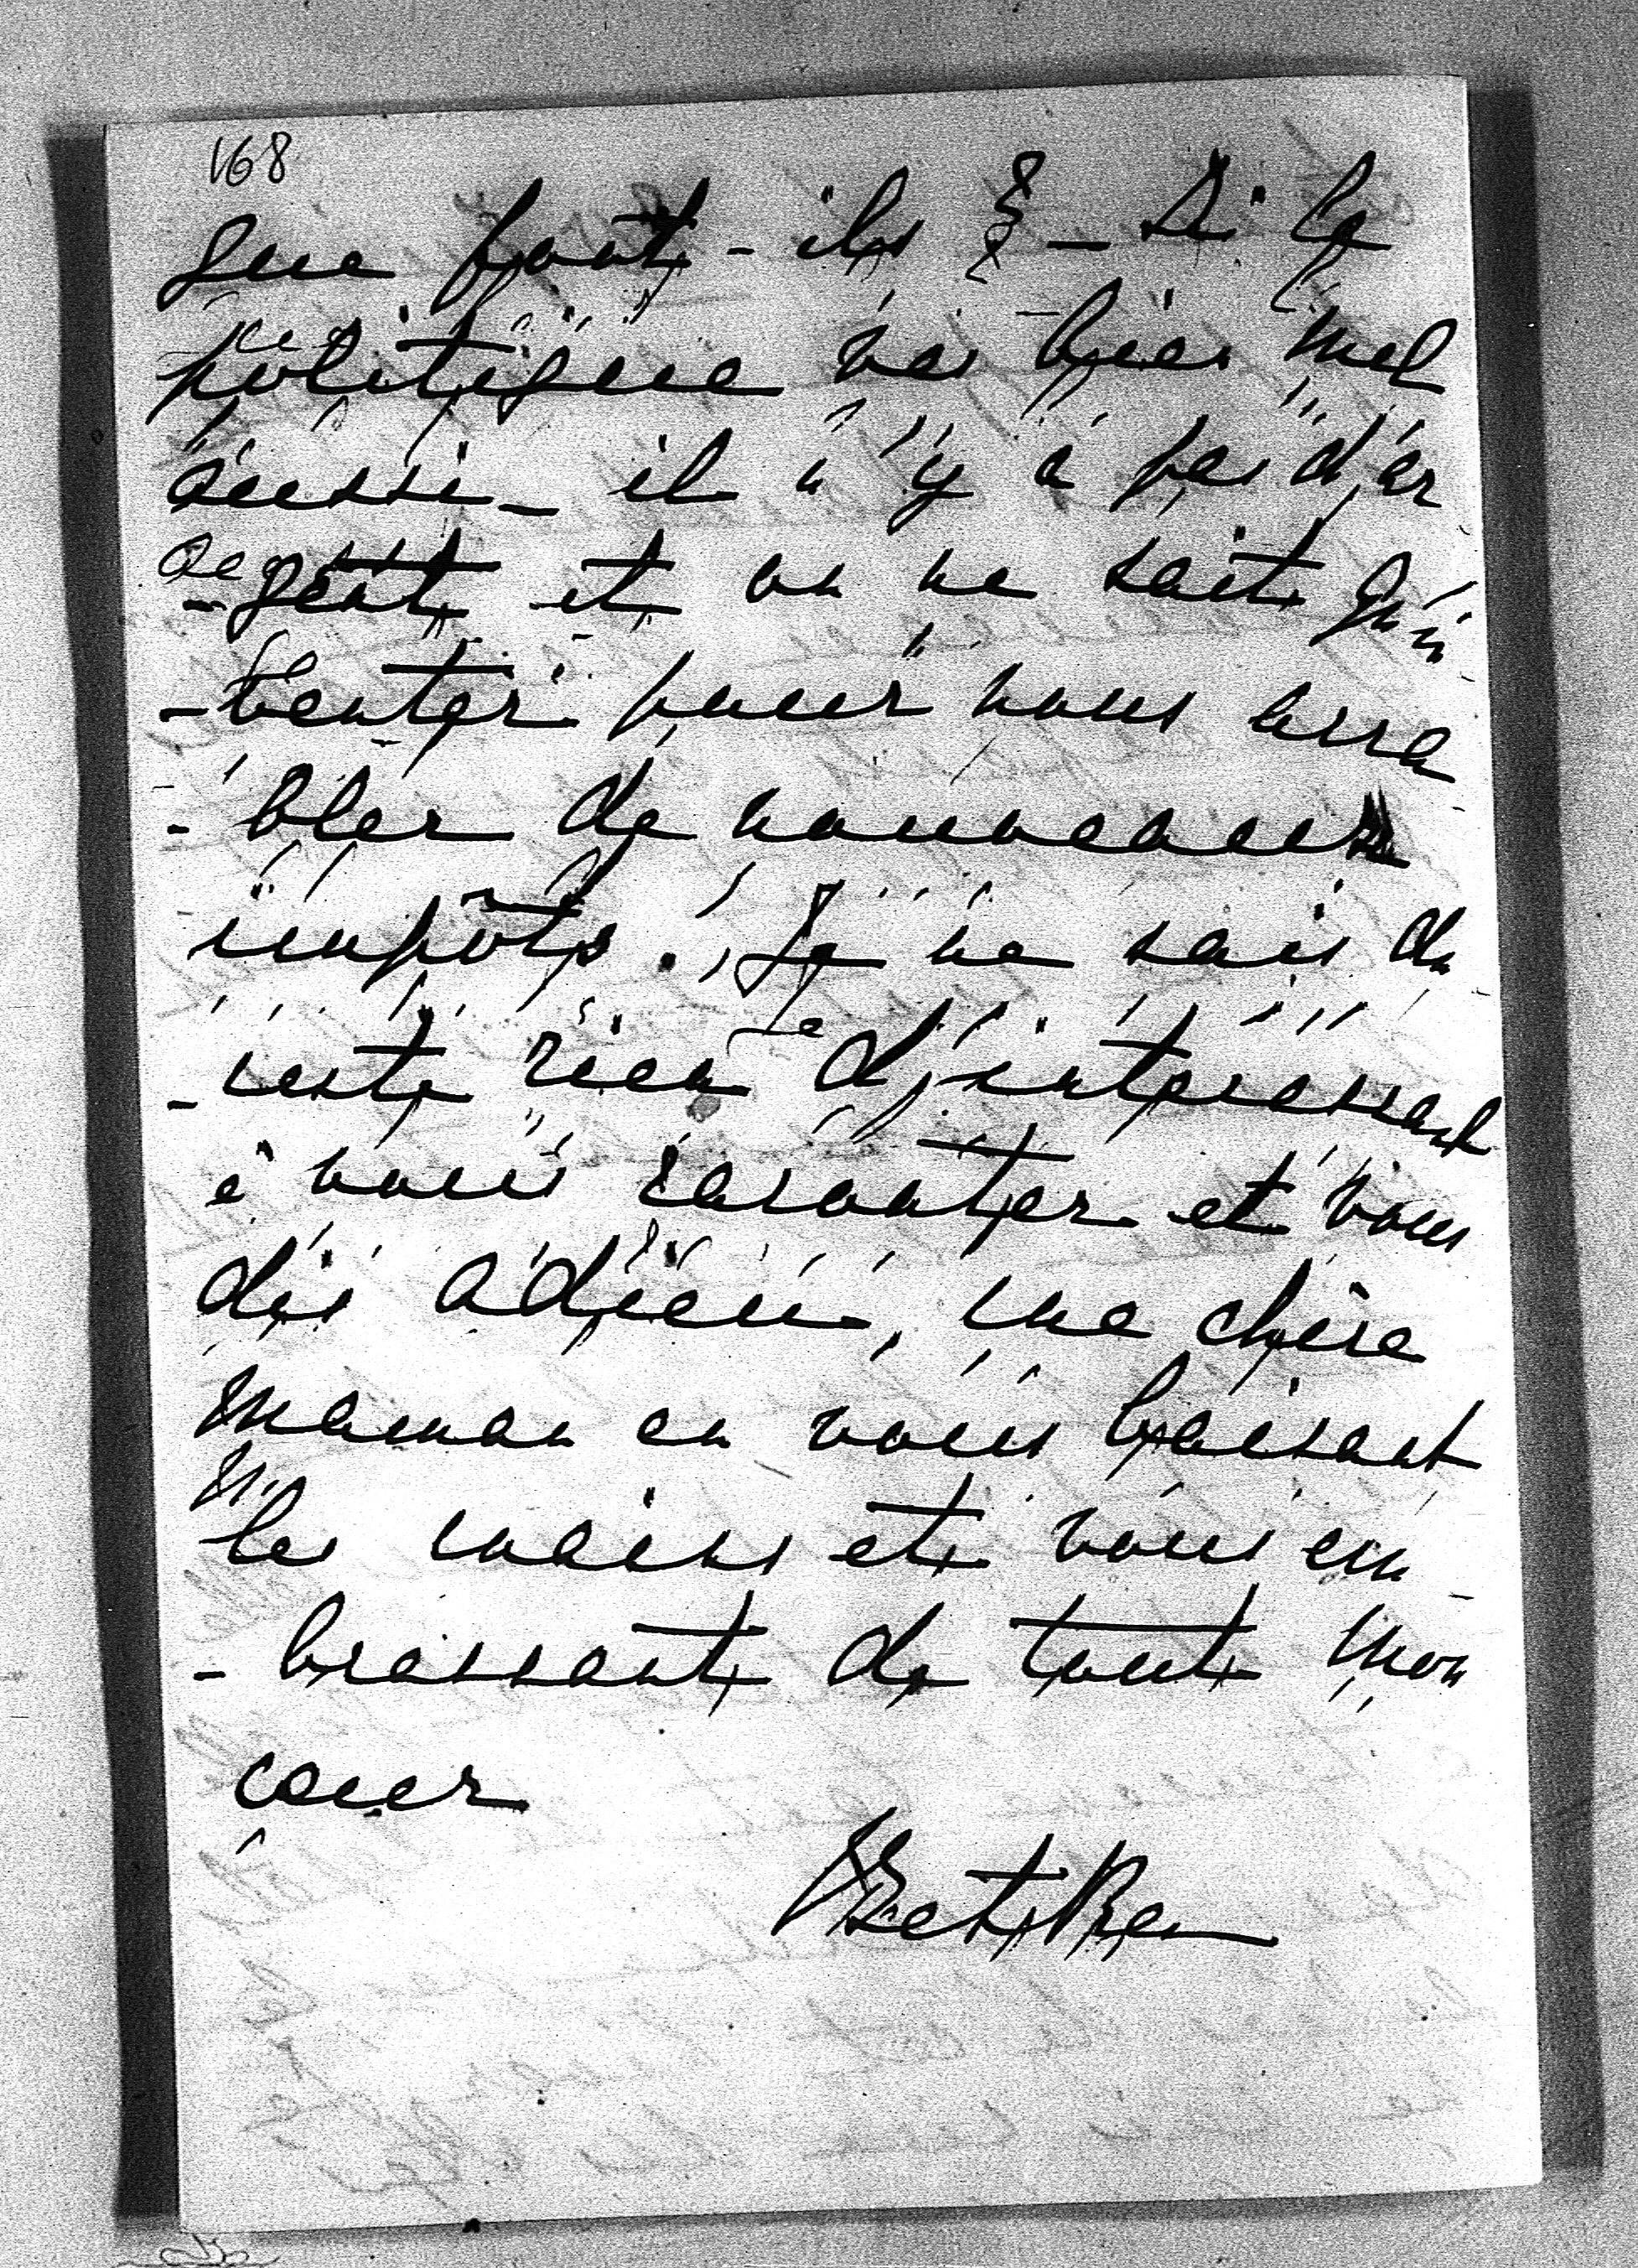 168
que font-ils ? - Ici la
politique va bien mal
aussi - il n'y a pas d'ar
-gent et on ne sait qu'in
-venter pour nous acca
-bler de nouveaux
impôts. Je ne sais du
reste rien d'intéressant
à vous raconter et vous
dis adieu, ma chère
maman en vous baisant
les mains et vous em-
-brassant de tout mon
coeur